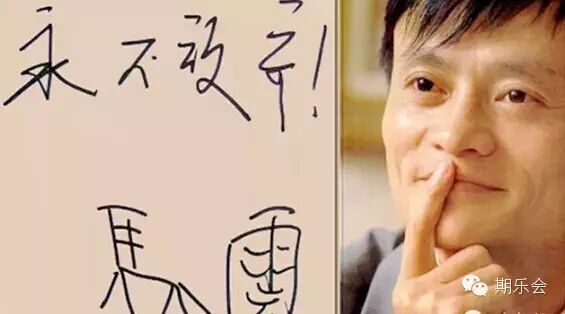 永不放弃!
馬雲
期乐会